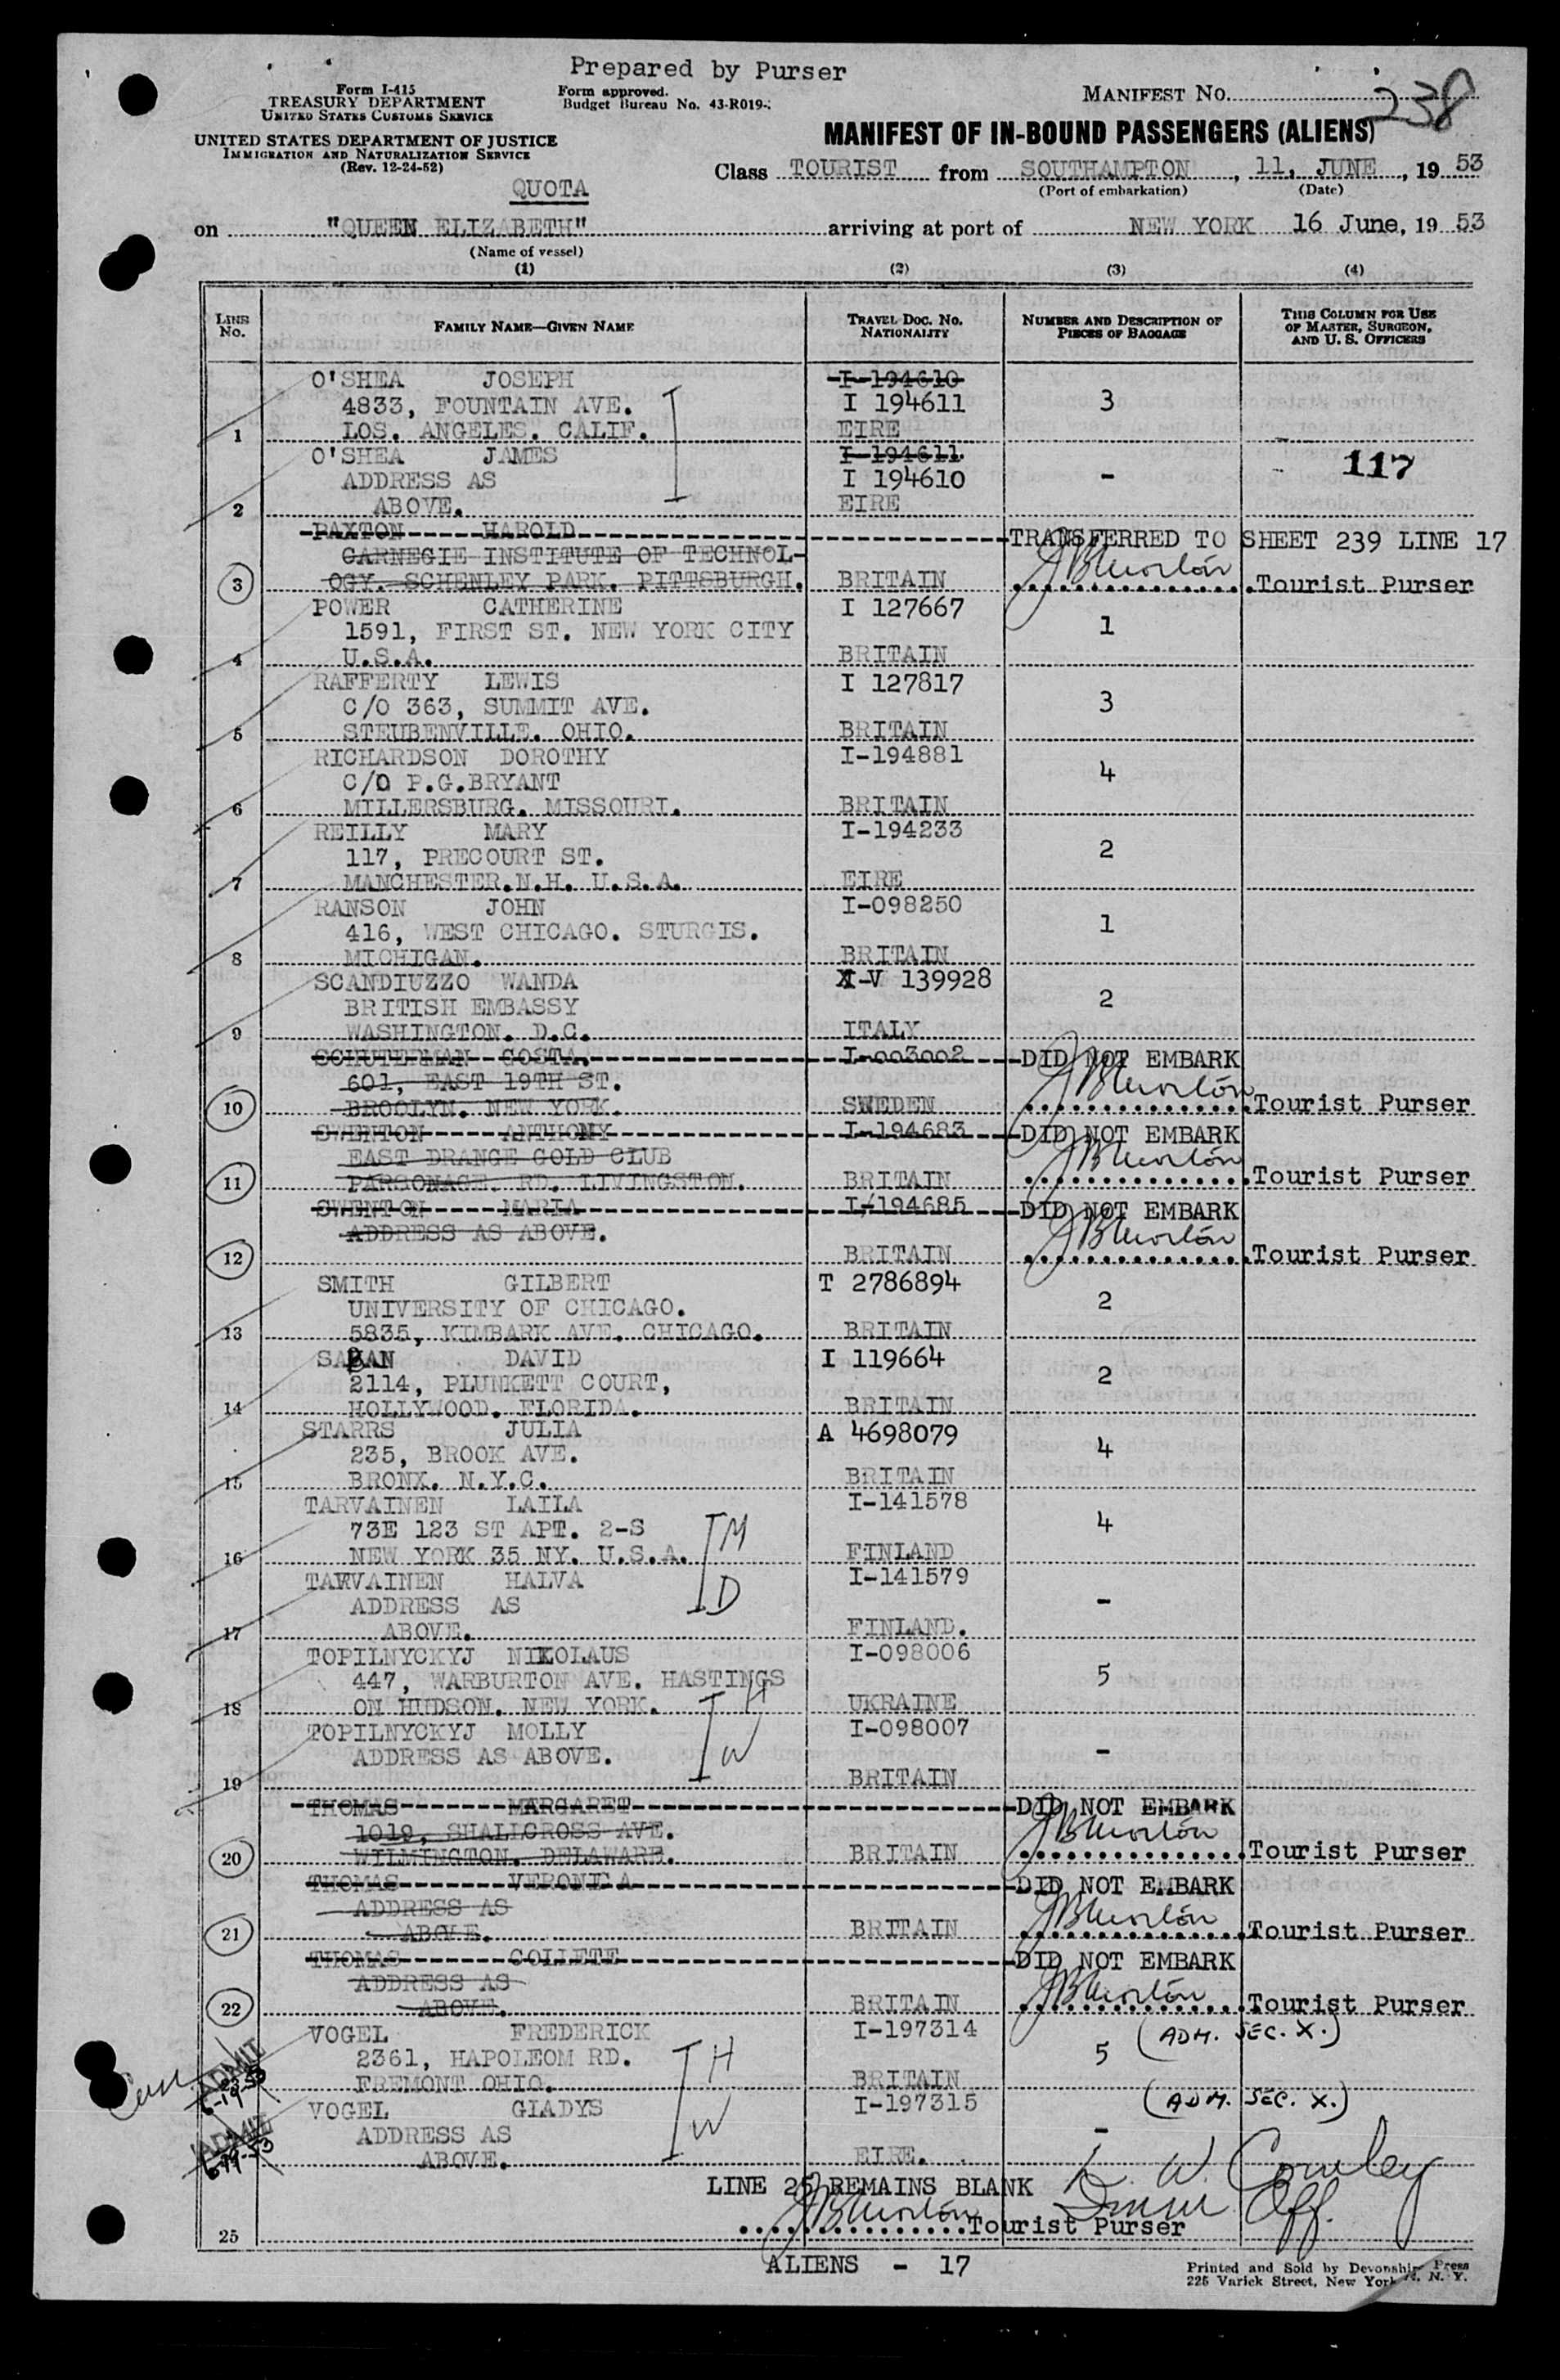 Prepared by Purser
Form I-415
TREASURY DEPARTMENT
UNITED STATES CUSTOMS SERVICE
UNITED STATES DEPARTMENT OF JUSTICE
IMMIGRATION AND NATURALIZATION SERVICE
(Rev. 12-24-52)
Form approved.
Budget Bureau No. 43-R019-
MANIFEST NO. 238
MANIFEST OF IN-BOUND PASSENGERS (ALIENS)
Class TOURIST from SOUTHAMPTON, 11, JUNE, 19 53
(Port of embarkation) (Date)
QUOTA
on "QUEEN ELIZABETH" arriving at port of NEW YORK 16 June, 19 53
(Name of vessel)
(1) (2) (3) (4)
LINE NO. FAMILY NAME—GIVEN NAME TRAVEL DOC. NO. NATIONALITY NUMBER AND DESCRIPTION OF PIECES OF BAGGAGE THIS COLUMN FOR USE OF MASTER, SURGEON, AND U. S. OFFICERS
O'SHEA JOSEPH I-194610
4833, FOUNTAIN AVE. I 194611 3
1 LOS. ANGELES. CALIF. EIRE
O'SHEA JAMES I-194611
ADDRESS AS I 194610 - 117
2 ABOVE. EIRE
PAXTON HAROLD TRANSFERRED TO SHEET 239 LINE 17
CARNEGIE INSTITUTE OF TECHNOL-
3 OGY. SCHENLEY PARK. PITTSBURGH. BRITAIN Tourist Purser
POWER CATHERINE I 127667
1591, FIRST ST. NEW YORK CITY 1
4 U.S.A. BRITAIN
RAFFERTY LEWIS I 127817
C/O 363, SUMMIT AVE. 3
5 STEUBENVILLE. OHIO. BRITAIN
RICHARDSON DOROTHY I-194881
C/O P.G.BRYANT 4
6 MILLERSBURG. MISSOURI. BRITAIN
REILLY MARY I-194233
117, PRECOURT ST. 2
7 MANCHESTER.N.H. U.S.A. EIRE
RANSON JOHN I-098250
416, WEST CHICAGO. STURGIS. 1
8 MICHIGAN. BRITAIN
SCANDIUZZO WANDA I-V 139928
BRITISH EMBASSY 2
9 WASHINGTON. D.C. ITALY
SCHUTERMAN GOSTA. I-003002 DID NOT EMBARK
601, EAST 19TH ST.
10 BROOLYN. NEW YORK. SWEDEN Tourist Purser
SWENTON ANTHONY I-194683 DID NOT EMBARK
EAST DRANGE GOLD CLUB
11 PARSONAGE. RD. LIVINGSTON. BRITAIN Tourist Purser
SWENTON MARIA I-194685 DID NOT EMBARK
ADDRESS AS ABOVE.
12 BRITAIN Tourist Purser
SMITH GILBERT T 2786894
UNIVERSITY OF CHICAGO. 2
13 5835, KIMBARK AVE. CHICAGO. BRITAIN
DAVID I 119664
2114, PLUNKETT COURT, 2
14 HOLLYWOOD. FLORIDA. BRITAIN
STARRS JULIA A 4698079
235, BROOK AVE. 4
15 BRONX. N.Y.C. BRITAIN
TARVAINEN LAILA I-141578
73E 123 ST APT. 2-S M 4
16 NEW YORK 35 NY. U.S.A. FINLAND
TARVAINEN HALVA I-141579
ADDRESS AS D -
17 ABOVE. FINLAND.
TOPILNYCKYJ NIKOLAUS I-098006
447, WARBURTON AVE. HASTINGS 5
18 ON HUDSON. NEW YORK. H UKRAINE
TOPILNYCKYJ MOLLY I-098007
ADDRESS AS ABOVE. W -
19 BRITAIN
THOMAS MARGARET DID NOT EMBARK
1019, SHALLCROSS AVE.
20 WILMINGTON. DELAWARE. BRITAIN Tourist Purser
THOMAS VERONICA DID NOT EMBARK
ADDRESS AS
21 ABOVE. BRITAIN Tourist Purser
THOMAS COLLETE DID NOT EMBARK
ADDRESS AS
22 ABOVE. BRITAIN Tourist Purser
VOGEL FREDERICK I-197314 (ADM. SEC. X.)
2361, HAPOLEOM RD. H 5
ADMIT FREMONT OHIO. BRITAIN
VOGEL GLADYS I-197315 (ADM. SEC. X.)
ADMIT ADDRESS AS W -
ABOVE. EIRE.
LINE 25 REMAINS BLANK
25 Tourist Purser
ALIENS - 17
Printed and Sold by Devonshire Press
225 Varick Street, New York, N. Y.